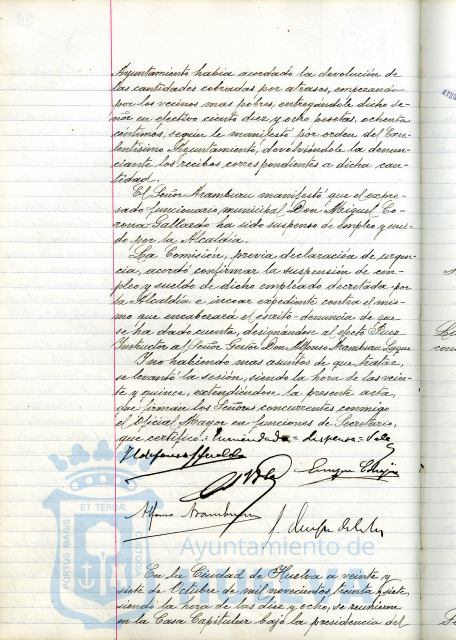 Ayuntamiento había acordado la devolución de
las cantidades cobradas por atrasos, empezando
por los vecinos mas pobres, entregándole dicho se-
ñor en efectivo ciento diez y ocho pesetas, ochenta
céntimos, según le manifestó por orden del Exce-
lentísimo Ayuntamiento, devolviéndole la denun-
ciante los recibos correspondientes a dicha can-
tidad.
El Señor Aramburu manifestó que el expre-
sado funcionario municipal Don Miguel Co-
rona Gallardo ha sido suspenso de empleo y suel-
do por la Alcaldía.
La Comisión, previa declaración de urgen-
cia, acordó confirmar la suspensión de em-
pleo y sueldo de dicho empleado decretada por
la Alcaldía e incoar expediente contra el mis-
mo que encabezará el escrito-denuncia de que
se ha dado cuenta, designándose al efecto Juez
Instructor al Señor Gestor Don Alfonso Aramburu Luque
Y no habiendo mas asuntos de que tratar,
se levantó la sesión, siendo la hora de las vein-
te y quince, extendiéndose la presente acta,
que firman los Señores concurrentes conmigo
el Oficial Mayor en funciones de Secretario,
que certifico = Enmendado = suspenso = Vale
Alfonso Aramburu
PORTUS MARIS ET TERRAE CUSTODIA
Ayuntamiento de
HUELVA
En la Ciudad de Huelva a veinte y
siete de Octubre de mil novecientos treinta y siete,
siendo la hora de las diez y ocho, se reunieron
en la Casa Capitular bajo la presidencia del